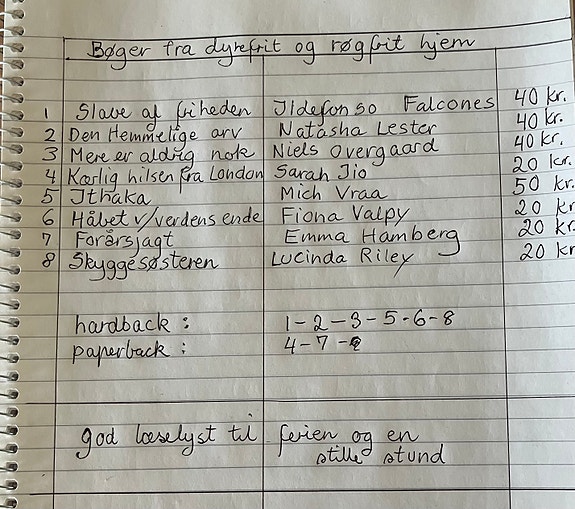 Bøger fra dyrefrit og røgfrit hjem
1 Slave af friheden Ildefonso Falcones 40 kr.
2 Den Hemmelige arv Natasha Lester 40 kr.
3 Mere er aldrig nok Niels Overgaard 40 kr.
4 Kærlig hilsen fra London Sarah Jio 20 kr.
5 Ithaka Mich Vraa 50 kr.
6 Håbet v/verdens ende Fiona Valpy 20 kr
7 Forårsjagt Emma Hamberg 20 kr.
8 Skyggesøsteren Lucinda Riley 20 kr
hardback : 1-2-3-5-6-8
paperback : 4-7-
god læselyst til ferien og en
stille stund